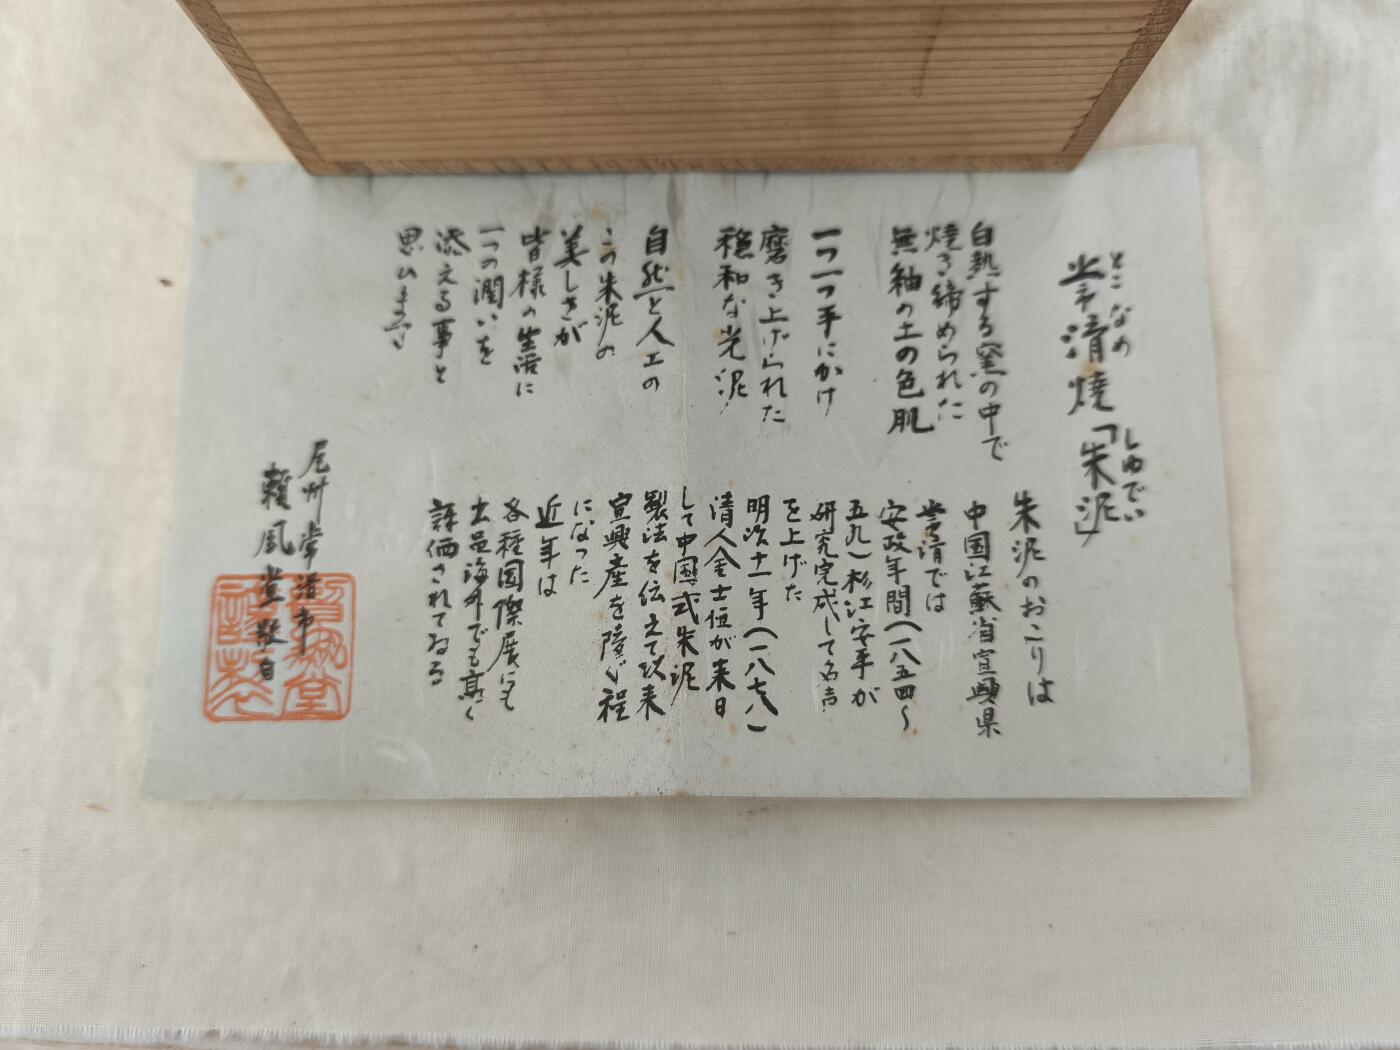 とこなめ しゅでい
常滑燒「朱泥」
白熱する窯の中で
焼き締められた
無釉の土の色肌
一つ一つ手にかけ
磨き上げられた
穏和な光泥
自然と人工の
この朱泥の
美しさが
皆様の生活に
一つの潤いを
添える事と
思ひます
朱泥のおこりは
中国江蘇省宣興県
常滑では
安政年間(一八五四〜
五九)杉江安平が
研究完成して名声
を上げた
明治十一年(一八七八)
清人金士恒が来日
して中国式朱泥
製法を伝えて以来
宣興産を陵ぐ程
になった
近年は
各種国際展にも
出品海外でも高く
評価されてゐる
尾州常滑市
賴風堂敬白